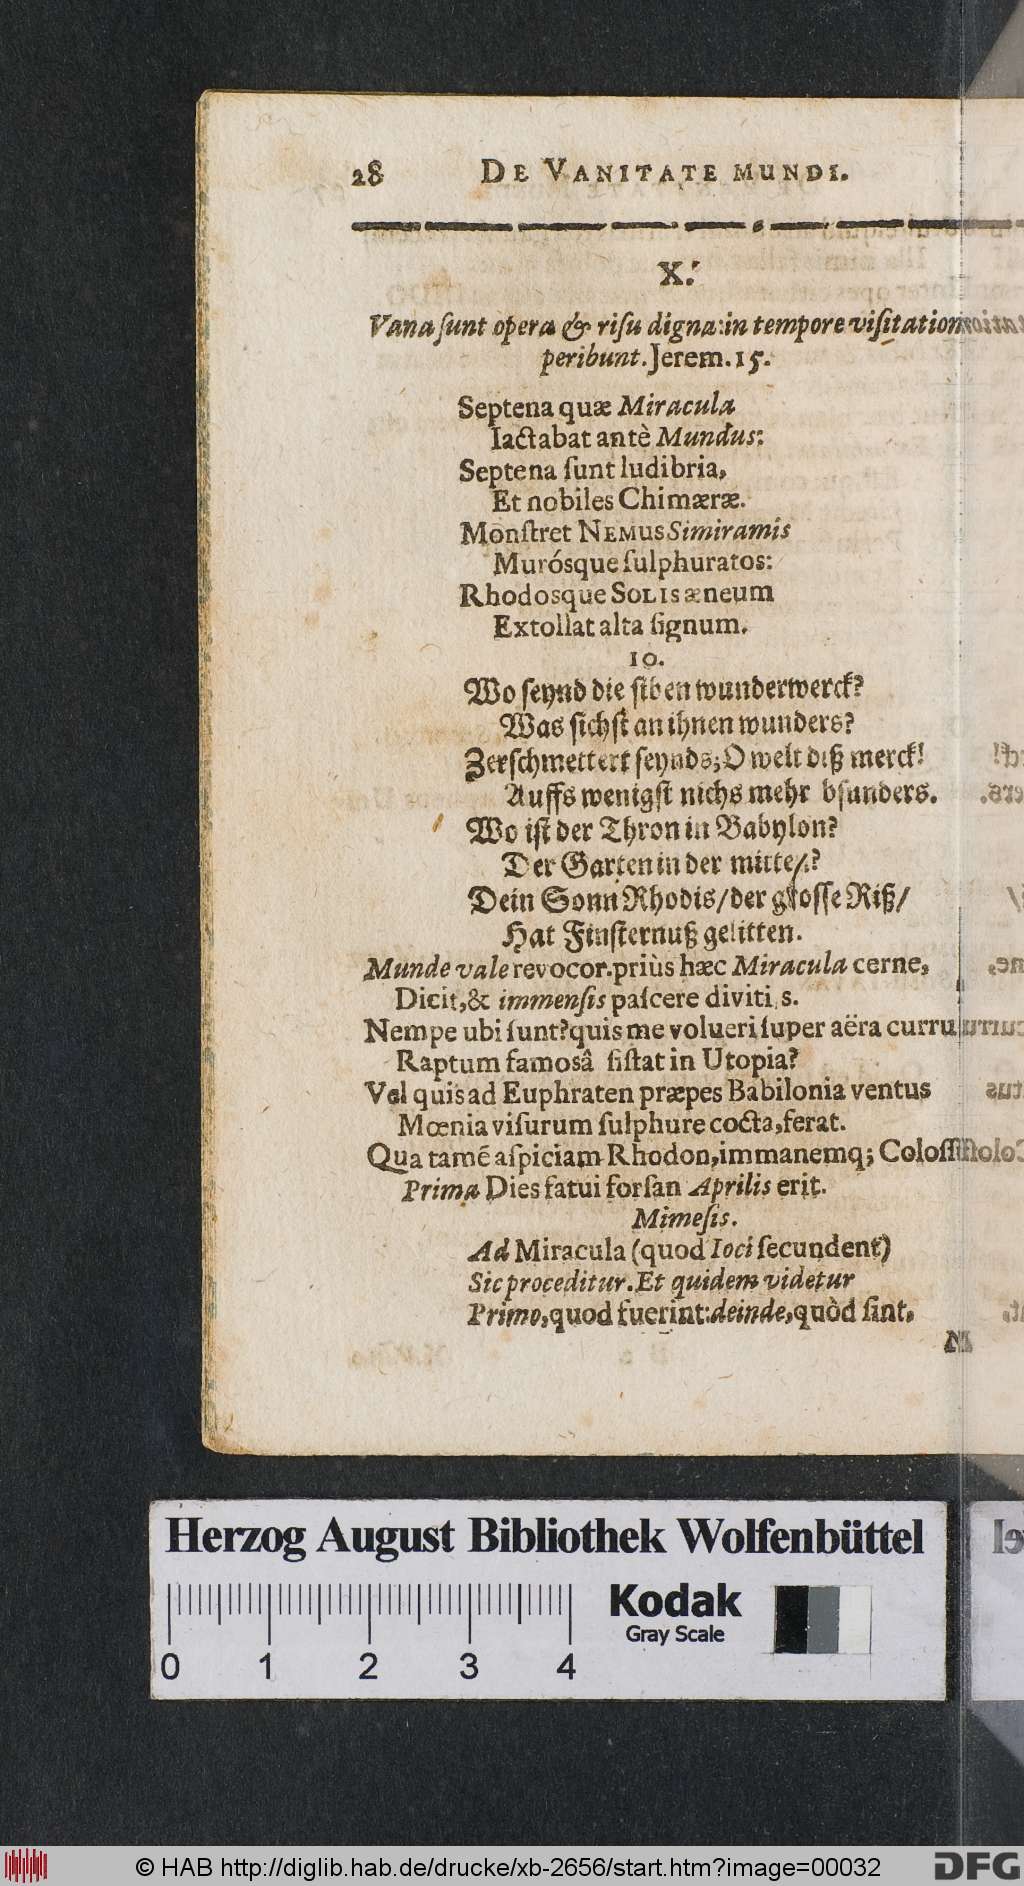 28 DE VANITATE MUNDI.
X.
Vana ſunt opera & riſu digna: in tempore viſitation
peribunt. Jerem. 15.
Septena quæ Miracula
Iactabat antè Mundus:
Septena ſunt ludibria,
Et nobiles Chimæræ.
Monſtret NEMUS Simiramis
Murósque ſulphuratos:
Rhodosque SOLIS æneum
Extollat alta ſignum.
10.
Wo ſeynd die ſiben wunderwerck?
Was ſichſt an ihnen wunders?
Zerſchmettert ſeynds; O welt diß merck!
Auffs wenigſt nichs mehr bſunders.
Wo iſt der Thron in Babylon?
Der Garten in der mitten?
Dein Sonn Rhodis/ der groſſe Riß/
Hat Finſternuß gelitten.
Munde vale revocor. priùs hæc Miracula cerne,
Dicit, & immenſis paſcere divitiis.
Nempe ubi ſunt? quis me volucri ſuper aëra curru
Raptum famosâ ſiſtat in Utopia?
Vel quis ad Euphraten præpes Babilonia ventus
Mœnia viſurum ſulphure cocta, ferat.
Qua tamē aſpiciam Rhodon, immanemq; Coloſſ
Prima Dies fatui forſan Aprilis erit.
Mimeſis.
Ad Miracula (quod Ioci ſecundent)
Sic proceditur. Et quidem videtur
Primo, quod fuerint: deinde, quòd ſint,
N
Herzog August Bibliothek Wolfenbüttel
0 1 2 3 4
Kodak
Gray Scale
© HAB http://diglib.hab.de/drucke/xb-2656/start.htm?image=00032
DFG